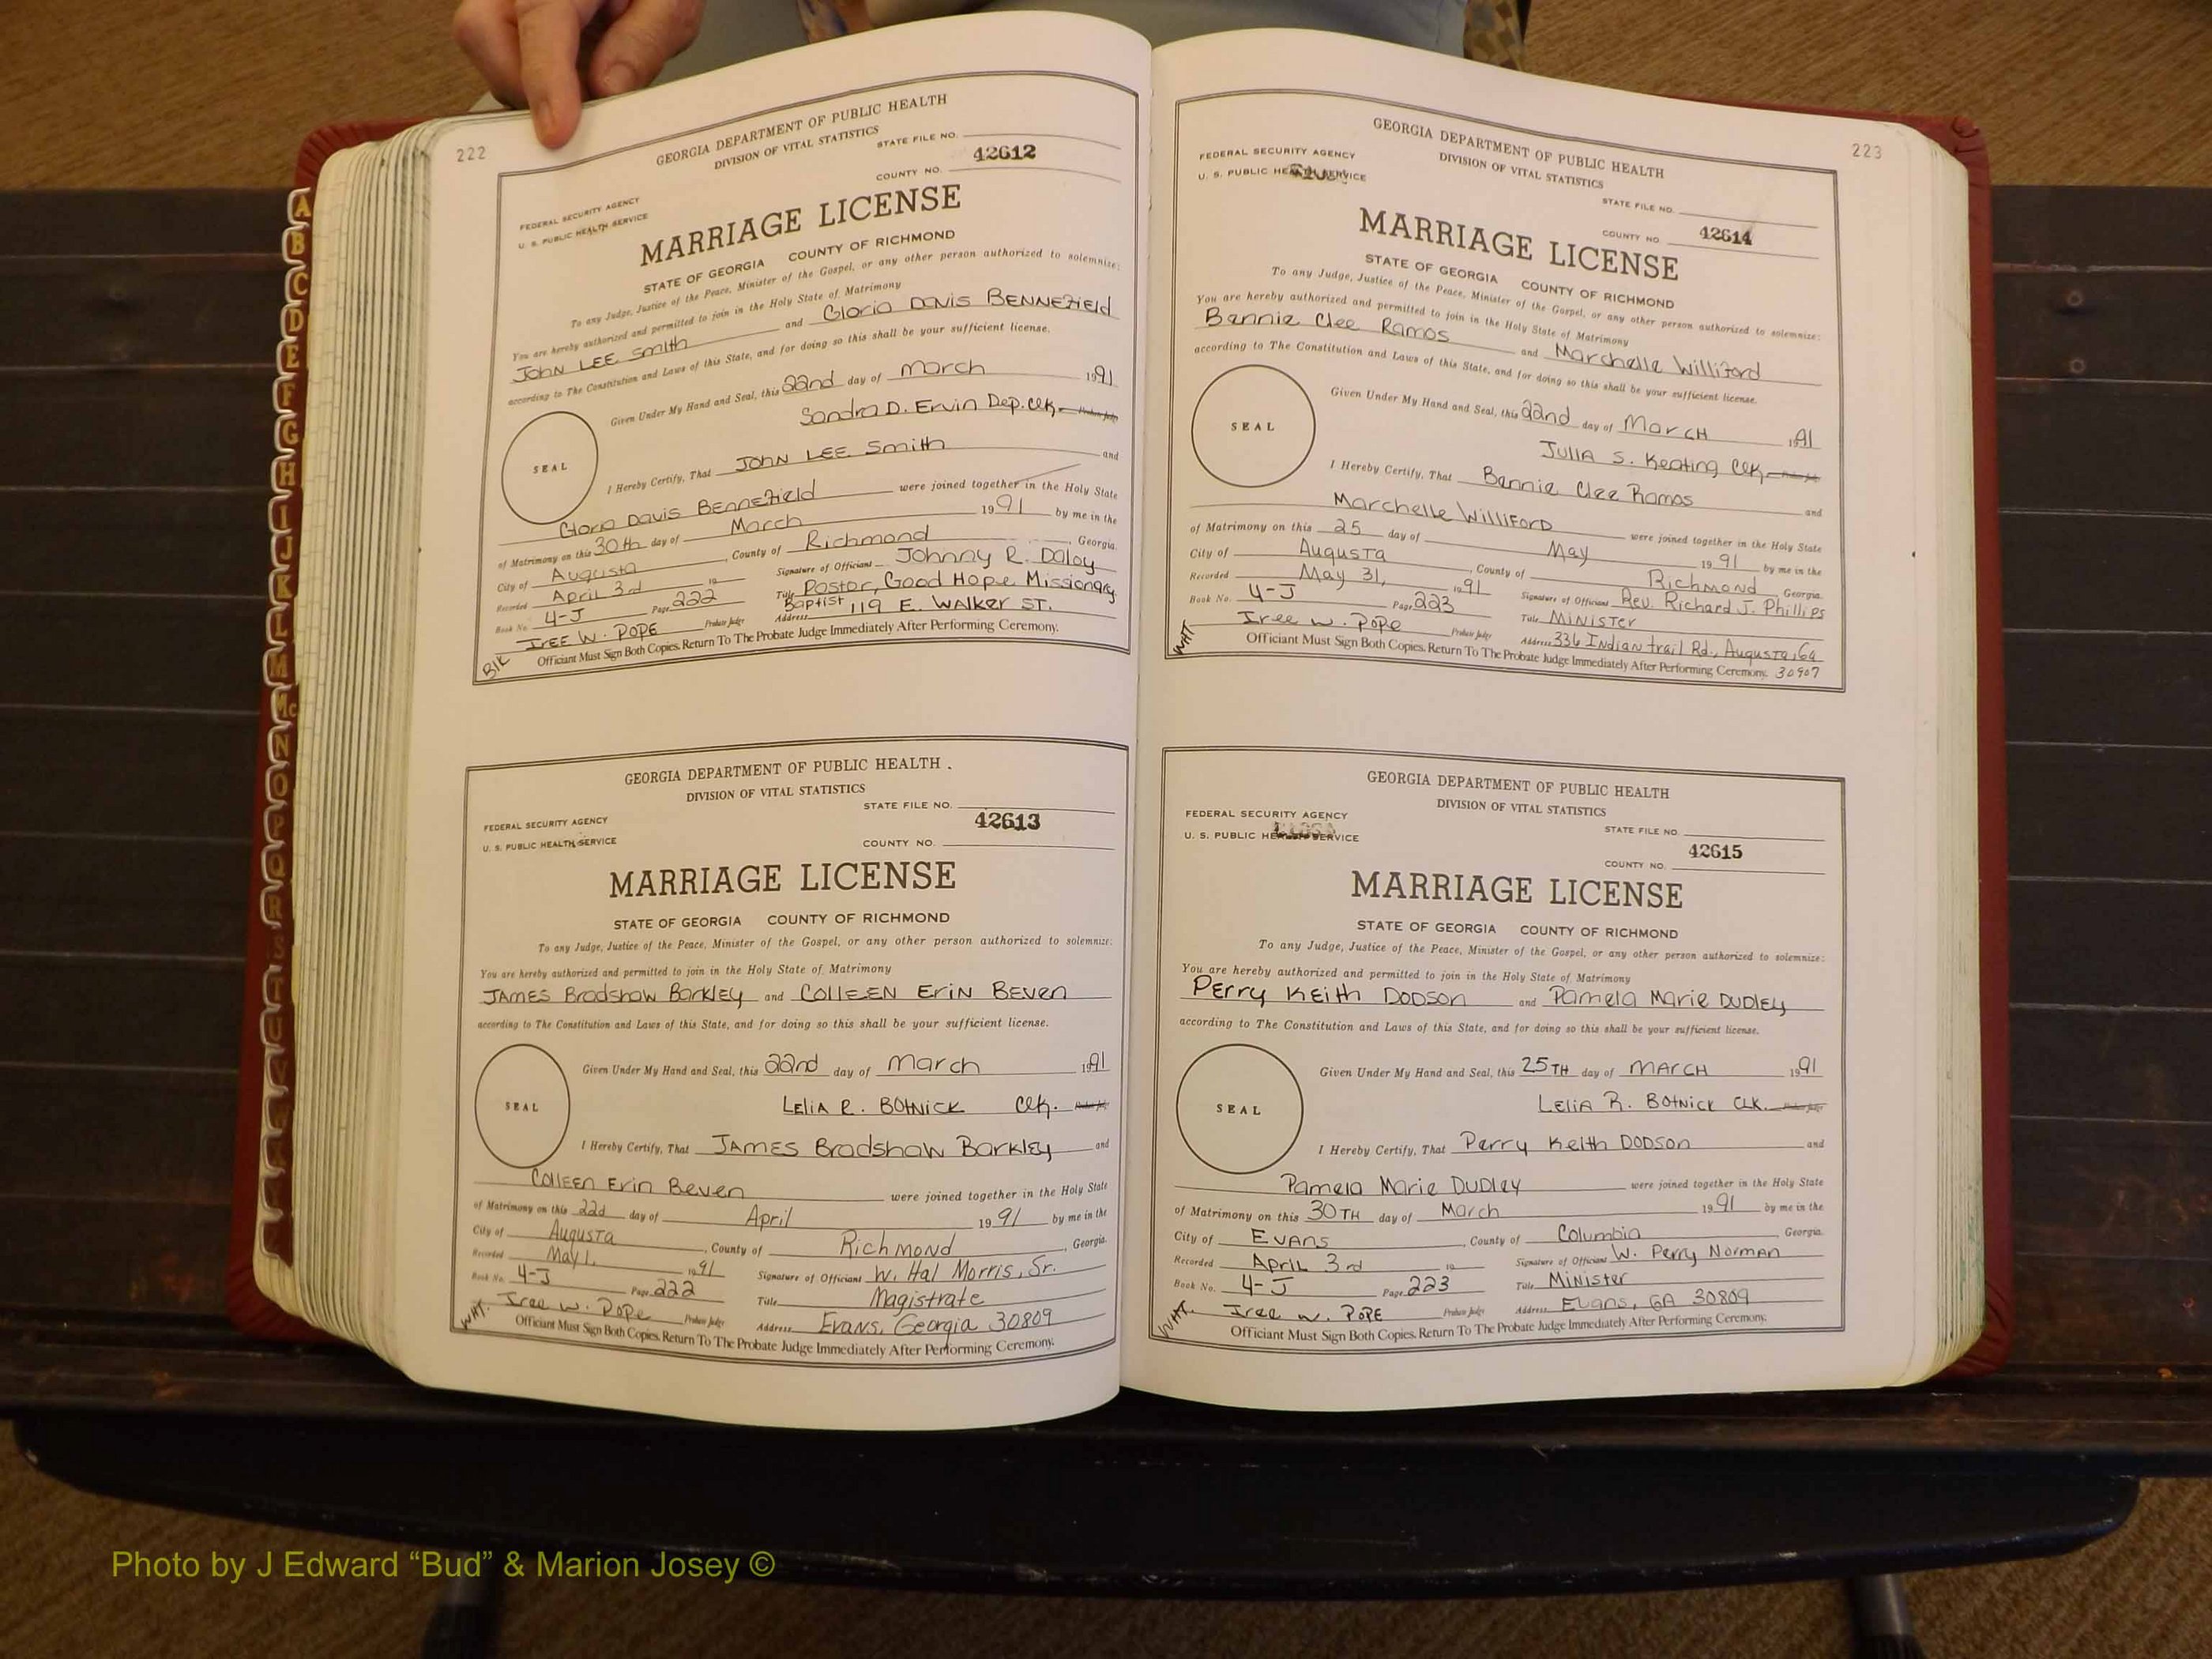 222
GEORGIA DEPARTMENT OF PUBLIC HEALTH
DIVISION OF VITAL STATISTICS
STATE FILE NO.
42612
COUNTY NO.
FEDERAL SECURITY AGENCY
U. S. PUBLIC HEALTH SERVICE
MARRIAGE LICENSE
STATE OF GEORGIA COUNTY OF RICHMOND
To any Judge, Justice of the Peace, Minister of the Gospel, or any other person authorized to solemnize:
You are hereby authorized and permitted to join in the Holy State of Matrimony
JOHN LEE Smith and Gloria DAVIS BENNEFIELD
according to The Constitution and Laws of this State, and for doing so this shall be your sufficient license.
Given Under My Hand and Seal, this 22nd day of March 1991
Sandra D. Ervin Dep. Clk.
SEAL
I Hereby Certify, That JOHN LEE Smith and
Gloria DAVIS BENNEFIELD were joined together in the Holy State
of Matrimony on this 30th day of March 1991 by me in the
City of Augusta, County of Richmond, Georgia.
Recorded April 3rd 19 Signature of Officiant Johnny R. Daloy
Book No. 4-J Page 222 Title Pastor, Good Hope Missionary
Baptist 119 E. WALKER ST.
IREE W. POPE Probate Judge Address
BLK Officiant Must Sign Both Copies. Return To The Probate Judge Immediately After Performing Ceremony.
GEORGIA DEPARTMENT OF PUBLIC HEALTH
DIVISION OF VITAL STATISTICS
STATE FILE NO.
42613
FEDERAL SECURITY AGENCY
U. S. PUBLIC HEALTH SERVICE
COUNTY NO.
MARRIAGE LICENSE
STATE OF GEORGIA COUNTY OF RICHMOND
To any Judge, Justice of the Peace, Minister of the Gospel, or any other person authorized to solemnize:
You are hereby authorized and permitted to join in the Holy State of Matrimony
JAMES Bradshaw Barkley and COLLEEN ERIN BEVEN
according to The Constitution and Laws of this State, and for doing so this shall be your sufficient license.
Given Under My Hand and Seal, this 22nd day of March 1991
LELIA R. BOTNICK Clk.
SEAL
I Hereby Certify, That JAMES Bradshaw Barkley and
COLLEEN Erin Beven were joined together in the Holy State
of Matrimony on this 22d day of April 1991 by me in the
City of Augusta, County of Richmond, Georgia.
Recorded May 1, 1991 Signature of Officiant W. Hal Morris, Sr.
Book No. 4-J Page 222 Title Magistrate
Iree W. Pope Probate Judge Address Evans, Georgia 30809
WHT. Officiant Must Sign Both Copies. Return To The Probate Judge Immediately After Performing Ceremony.
223
GEORGIA DEPARTMENT OF PUBLIC HEALTH
DIVISION OF VITAL STATISTICS
FEDERAL SECURITY AGENCY
U. S. PUBLIC HEALTH SERVICE
STATE FILE NO.
COUNTY NO. 42614
MARRIAGE LICENSE
STATE OF GEORGIA COUNTY OF RICHMOND
To any Judge, Justice of the Peace, Minister of the Gospel, or any other person authorized to solemnize:
You are hereby authorized and permitted to join in the Holy State of Matrimony
Bennie Clee Ramos and Marchelle Williford
according to The Constitution and Laws of this State, and for doing so this shall be your sufficient license.
Given Under My Hand and Seal, this 22nd day of MARCH 1991
JULIA S. Keating Clk.
SEAL
I Hereby Certify, That Bennie Clee Ramos and
Marchelle WILLIFORD were joined together in the Holy State
of Matrimony on this 25 day of May 1991 by me in the
City of Augusta, County of Richmond Georgia.
Recorded May 31, 1991 Signature of Officiant Rev. Richard J. Phillips
Book No. 4-J Page 223 Title MINISTER
Iree W. Pope Probate Judge Address 336 Indian trail Rd., Augusta, Ga
WHT Officiant Must Sign Both Copies. Return To The Probate Judge Immediately After Performing Ceremony. 30907
GEORGIA DEPARTMENT OF PUBLIC HEALTH
DIVISION OF VITAL STATISTICS
FEDERAL SECURITY AGENCY
U. S. PUBLIC HEALTH SERVICE
STATE FILE NO.
42615
COUNTY NO.
MARRIAGE LICENSE
STATE OF GEORGIA COUNTY OF RICHMOND
To any Judge, Justice of the Peace, Minister of the Gospel, or any other person authorized to solemnize:
You are hereby authorized and permitted to join in the Holy State of Matrimony
Perry Keith DODSON and Pamela Marie DUDLEY
according to The Constitution and Laws of this State, and for doing so this shall be your sufficient license.
Given Under My Hand and Seal, this 25TH day of MARCH 1991
LELIA R. BOTNICK CLK.
SEAL
I Hereby Certify, That Perry Keith DODSON and
Pamela Marie DUDLEY were joined together in the Holy State
of Matrimony on this 30TH day of March 1991 by me in the
City of EVANS, County of Columbia Georgia.
Recorded APRIL 3rd 19 Signature of Officiant W. Perry Norman
Book No. 4-J Page 223 Title Minister
Iree W. POPE Probate Judge Address Evans, GA 30809
WHT. Officiant Must Sign Both Copies. Return To The Probate Judge Immediately After Performing Ceremony.
A
B
C
D
E
F
G
H
I
J
K
L
M
Mc
N
O
P
Q
R
S
T
U
V
W
Photo by J Edward “Bud” & Marion Josey ©